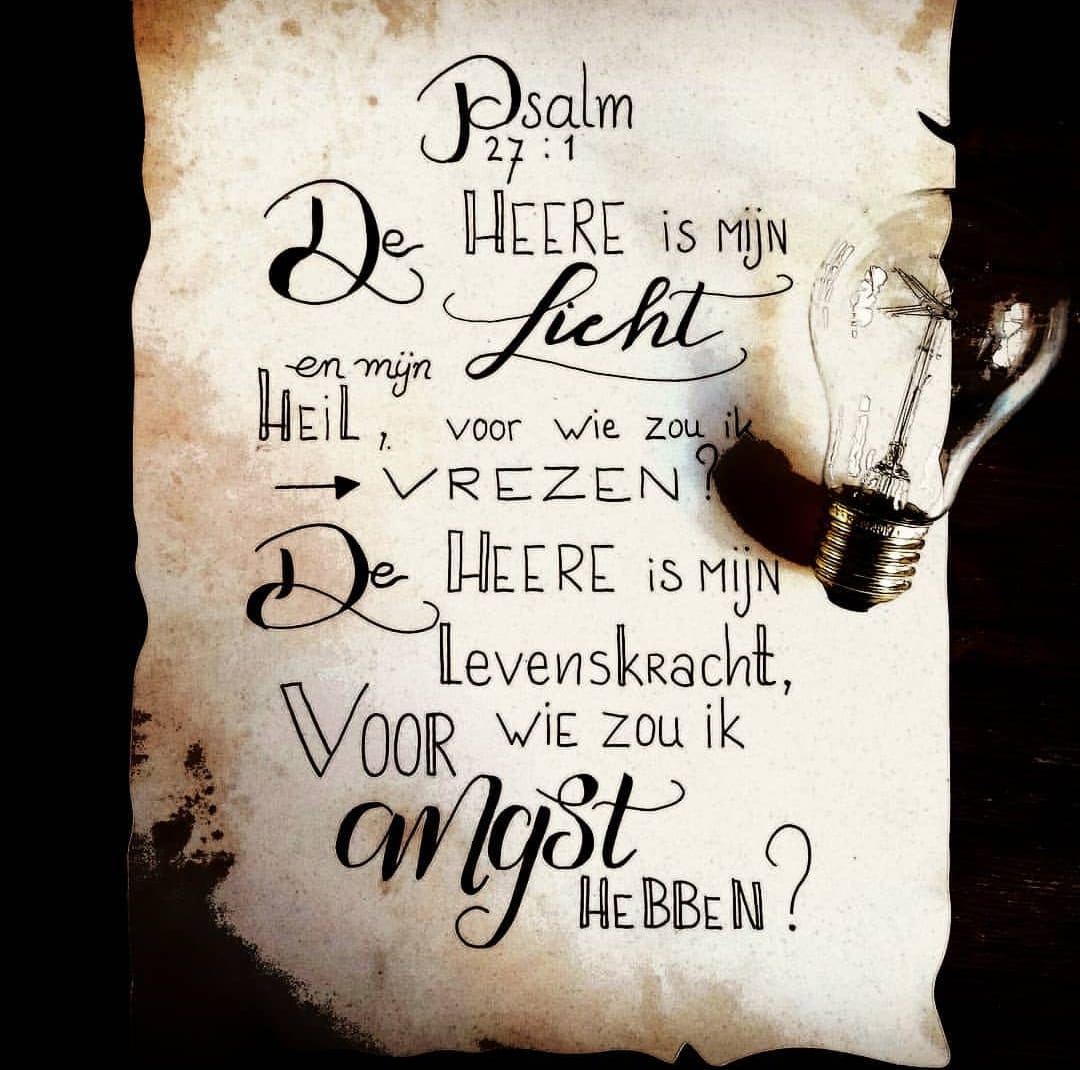 Psalm
27:1
De HEERE is mijn
Licht
en mijn
Heil, voor wie zou ik
→ VREZEN?
De HEERE is mijn
Levenskracht,
Voor wie zou ik
angst
HEBBEN?